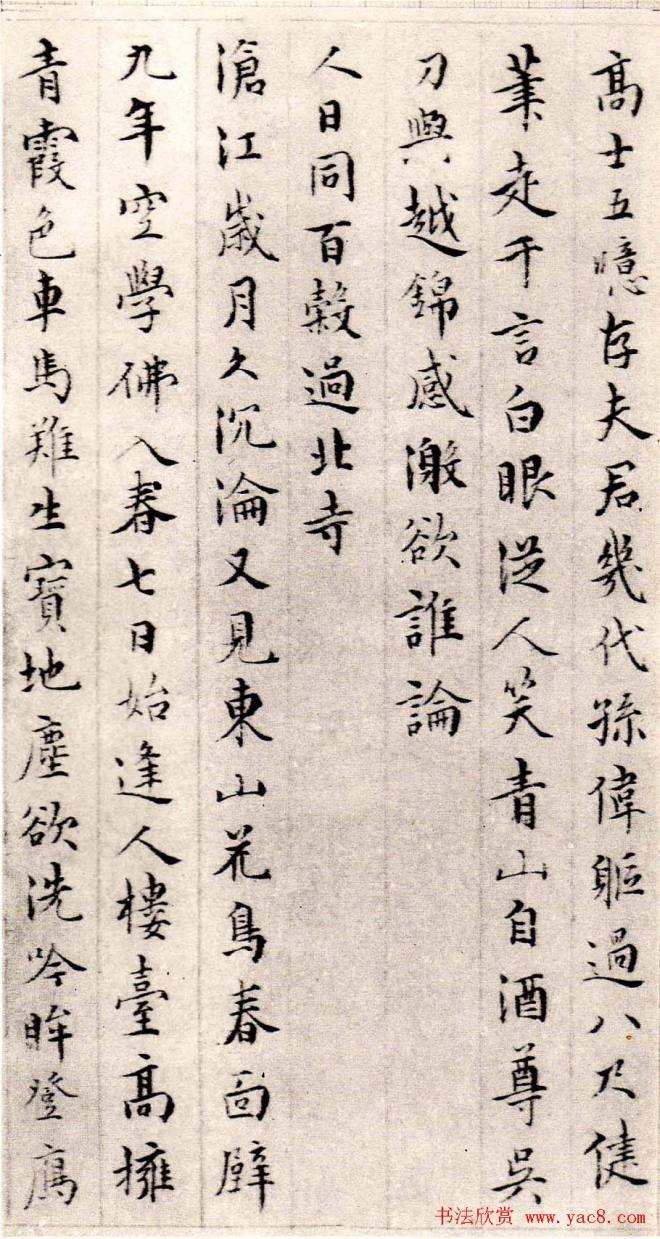 高士五噫存夫君幾代孫偉軀過八尺健
筆走千言白眼從人笑青山自酒尊吳
刀與越錦感激欲誰論
人日同百穀過北寺
滄江歲月久沉淪又見東山花鳥春面壁
九年空學佛入春七日始逢人樓臺高擁
青霞色車馬難生寶地塵欲洗吟眸登鴈
书法欣赏 www.yac8.com